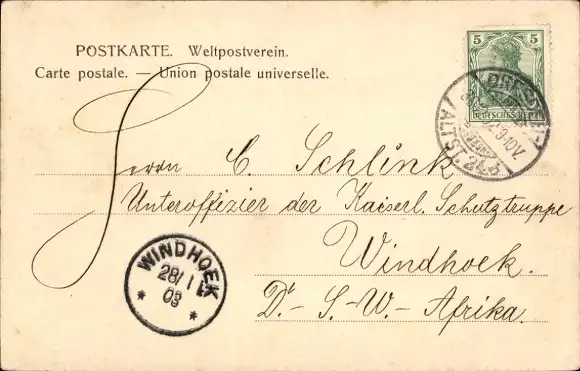 POSTKARTE. Weltpostverein.
Carte postale. — Union postale universelle.
5 5
DEUTSCHES REICH
ALTST.
9-10V.
Herrn C. Schlink
Unteroffizier der Kaiserl. Schutztruppe
Windhoek.
Dt.-S.-W.-Afrika.
WINDHOEK
28/1
03
* *